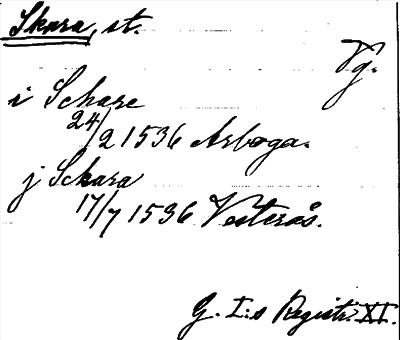 Skara, st.
Vg.
i Schare
24/2 1536 Arboga.
j Sckara
17/7 1536 Vesterås.
G. I:s Registr. XI.